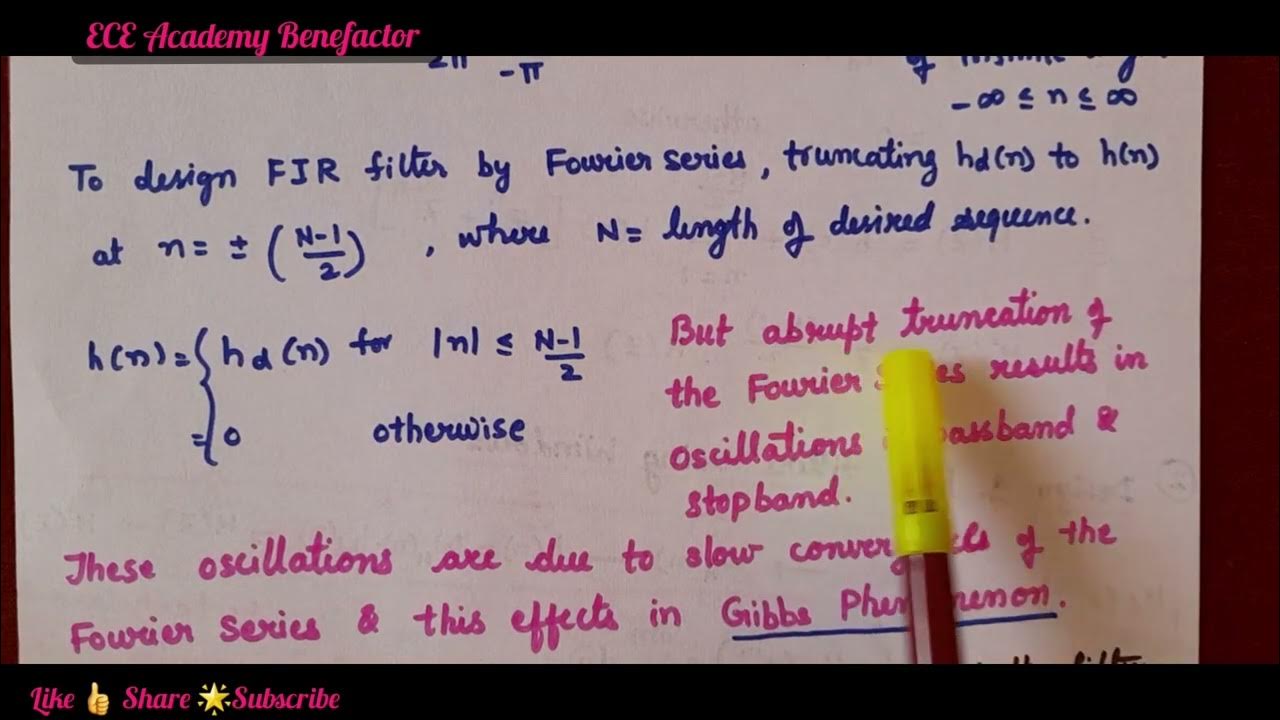 ECE Academy Benefactor
-π
of
- ∞ ≤ n ≤ ∞
To design FIR filter by Fourier series, truncating hd(n) to h(n)
at n = ± (N-1/2) , where N = length of desired sequence.
h(n) = { hd(n) for |n| ≤ N-1/2
= 0 otherwise
But abrupt truncation of
the Fourier results in
oscillations passband &
stopband.
These oscillations are due to slow of the
Fourier series & this effects in Gibbs
Like 👍 Share 🌟Subscribe